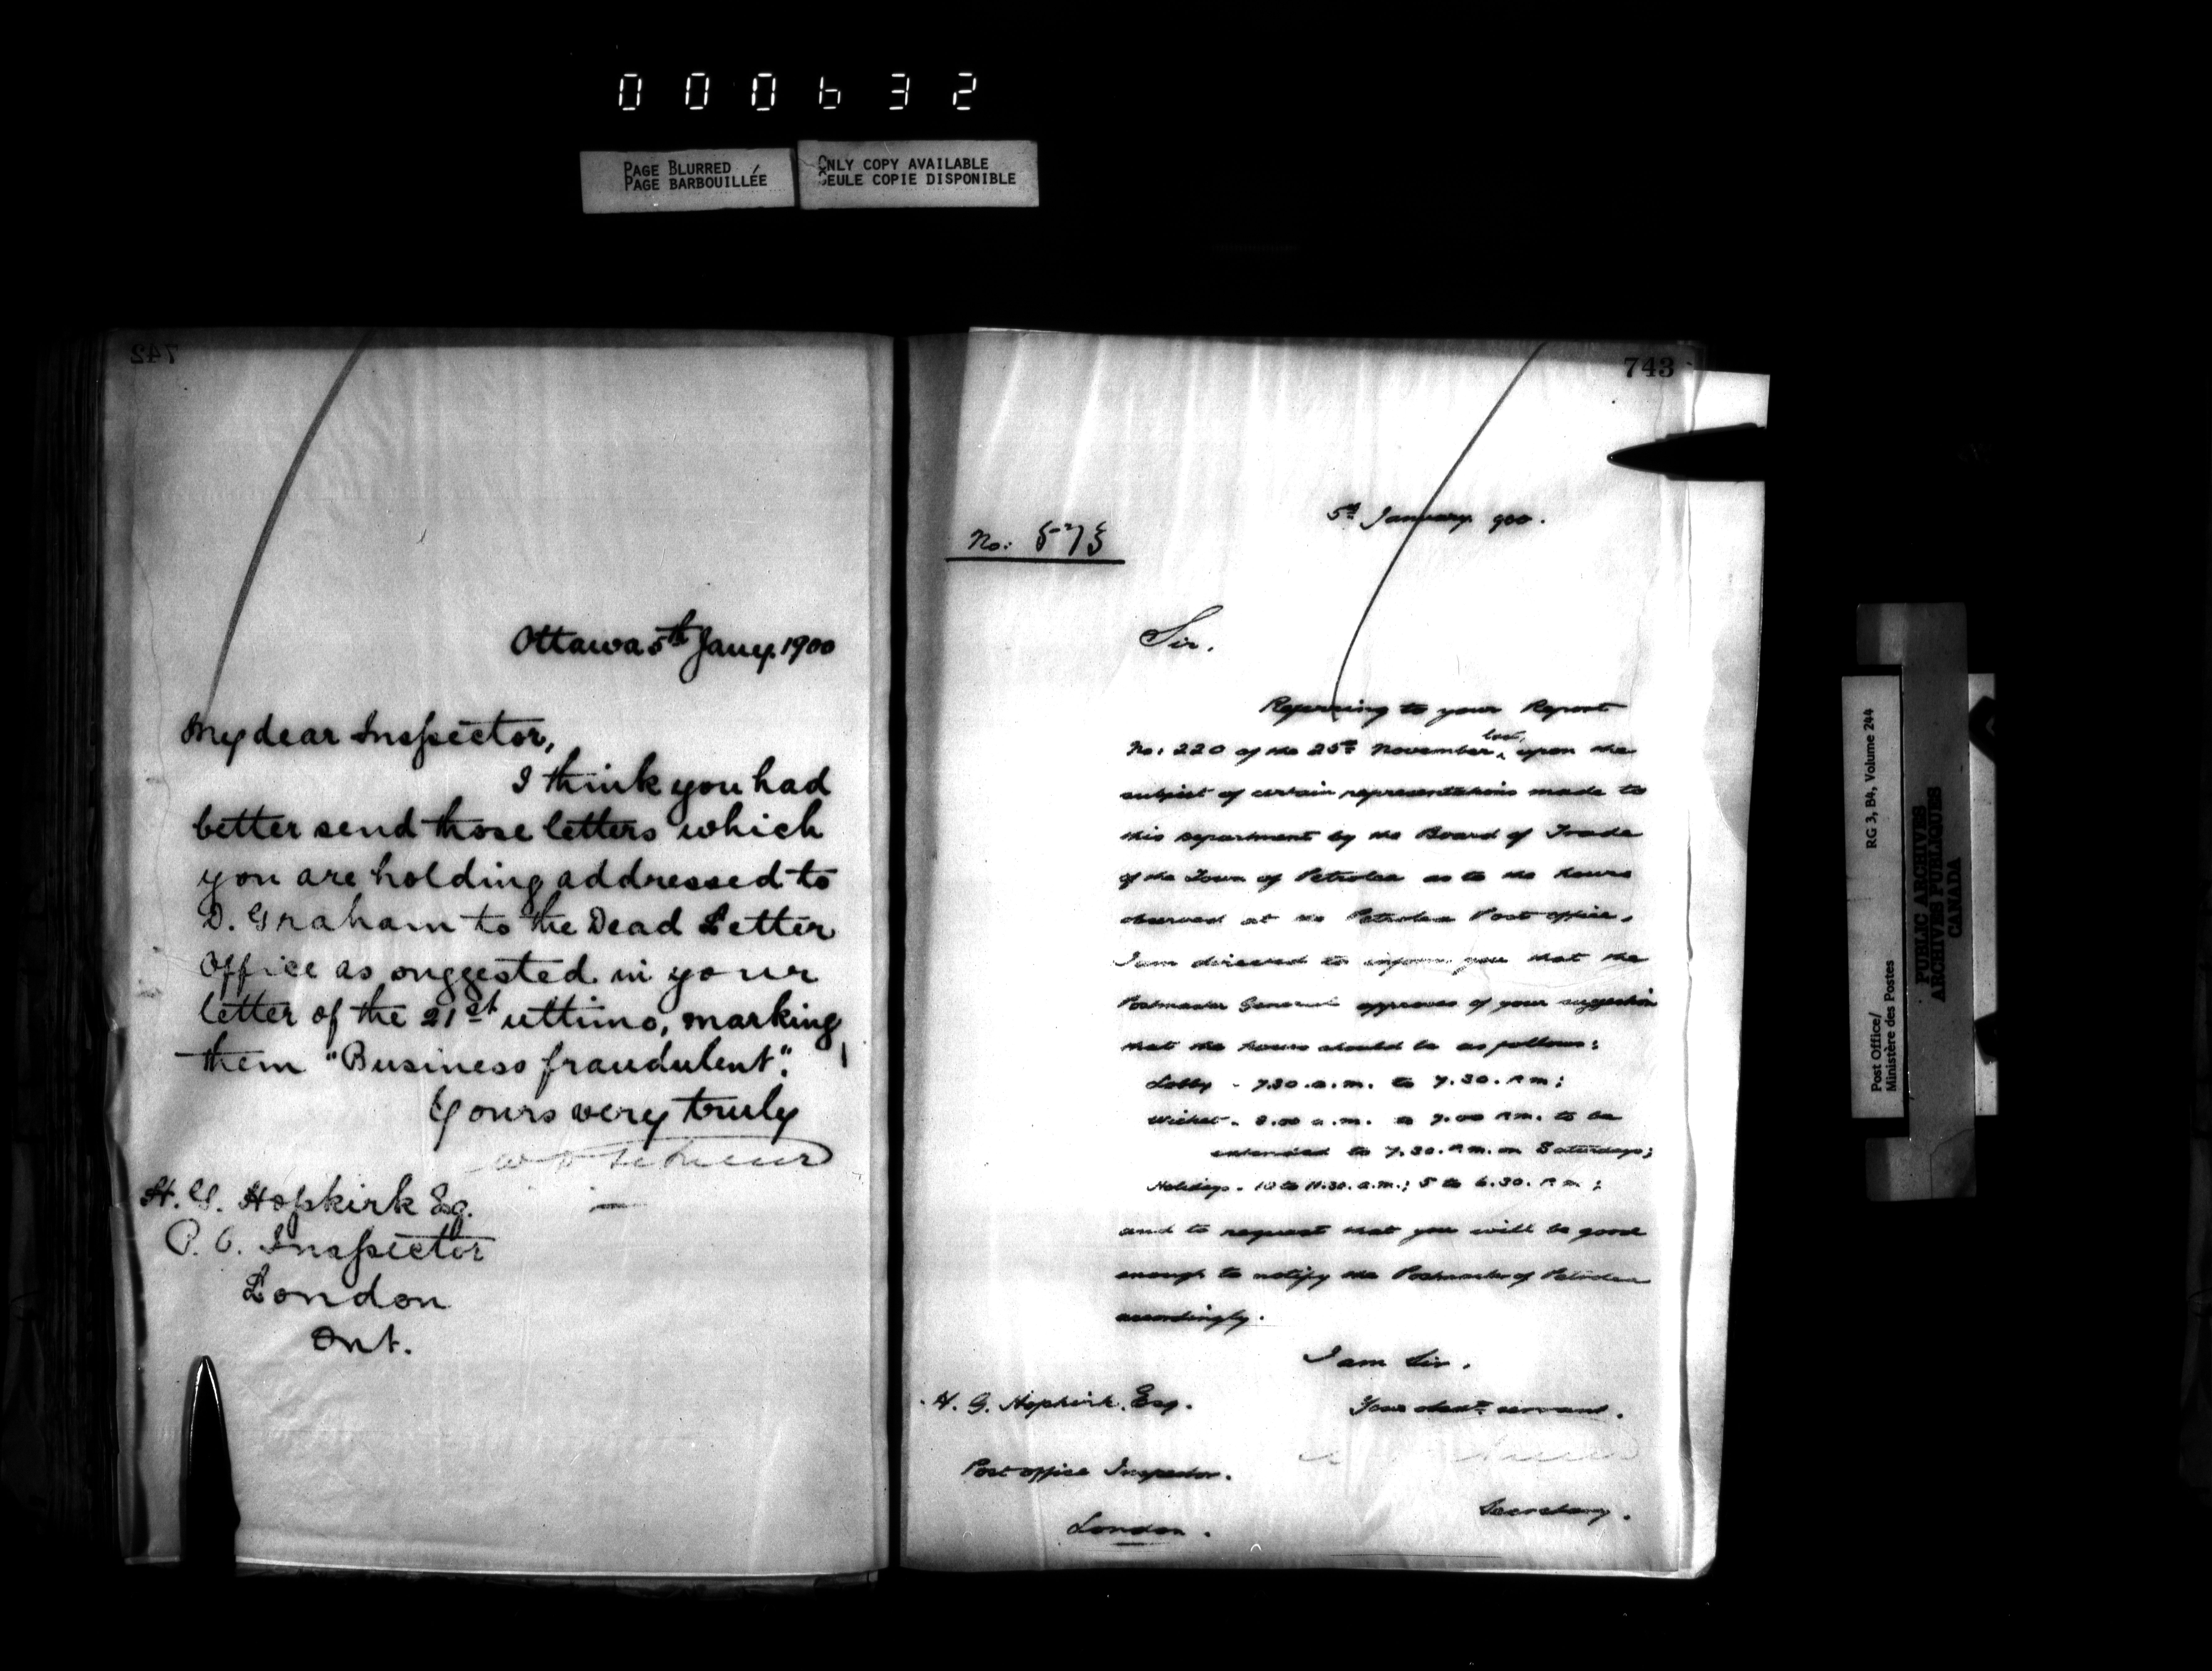 000632
PAGE BLURRED
PAGE BARBOUILLÉE
ONLY COPY AVAILABLE
SEULE COPIE DISPONIBLE
742
Ottawa 5th Jany. 1900
My dear Inspector,
I think you had
better send those letters which
you are holding addressed to
D. Graham to the Dead Letter
Office as suggested in your
letter of the 21st ultimo, marking
them "Business fraudulent".
Yours very truly
H. G. Hopkirk Esq.
P. O. Inspector
London
Ont.
743
5th January 900.
No: 573
Sir,
Referring to your Report
No: 220 of the 25th November last, upon the
subject of certain representations made to
this Department by the Board of Trade
of the Town of Petrolea as to the hours
observed at the Petrolea Post office,
I am directed to inform you that the
Postmaster General approves of your suggestion
that the hours should be as follows:
Lobby - 7.30.a.m. to 7.30.P.m;
Wicket - 8.00 a.m. to 7.00 P.m. to be
extended to 7.30.P.m. on Saturdays;
Holidays - 10 to 11.30.a.m.; 5 to 6.30. P.m;
and to request that you will be good
enough to notify the Postmaster of Petrolea
accordingly.
I am Sir,
Your obedt. servant.
H. G. Hopkirk. Esq.
Post office Inspector.
Secretary.
London.
RG 3, B4, Volume 244
Post Office/
Ministère des Postes
PUBLIC ARCHIVES
ARCHIVES PUBLIQUES
CANADA